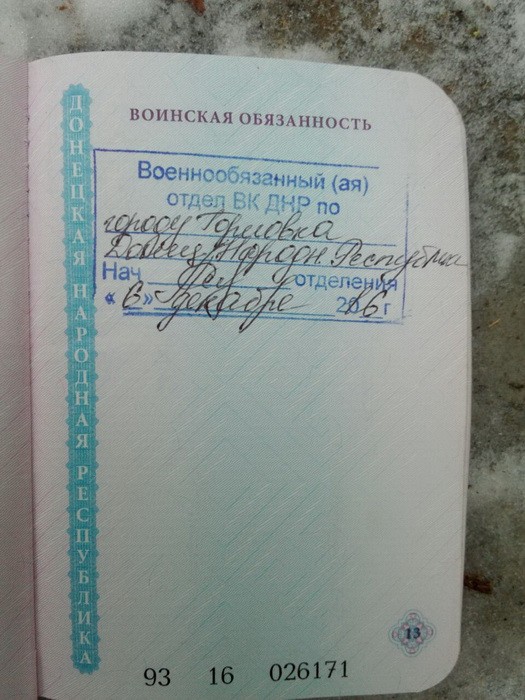 ВОИНСКАЯ ОБЯЗАННОСТЬ
ДОНЕЦКАЯ НАРОДНАЯ РЕСПУБЛИКА
Военнообязанный (ая)
отдел ВК ДНР по
городу Горловка
Донец Народн Республика
Нач отделения
«6» декабре 2016 г
13
93 16 026171